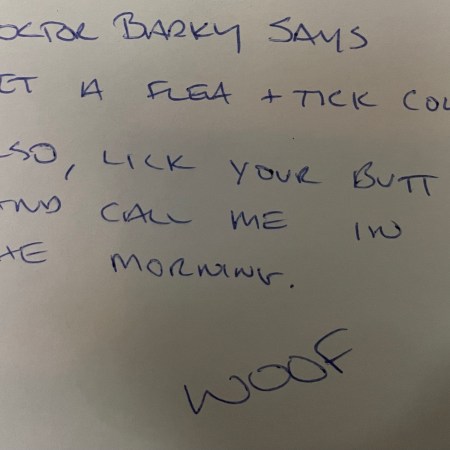 OCTOR BARKY SAYS
ET A FLEA + TICK COL
LSO, LICK YOUR BUTT
AND CALL ME IN
HE MORNING.
WOOF